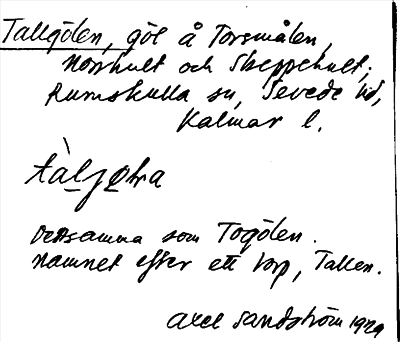 Tallgölen, göl å Torsmålen,
Norrhult och Skeppehult;
Rumskulla sn, Sevede hd,
Kalmar l.
tàljøtra
Detsamma som Togölen.
Namnet efter ett torp, Tallen.
Axel Sandström 1929